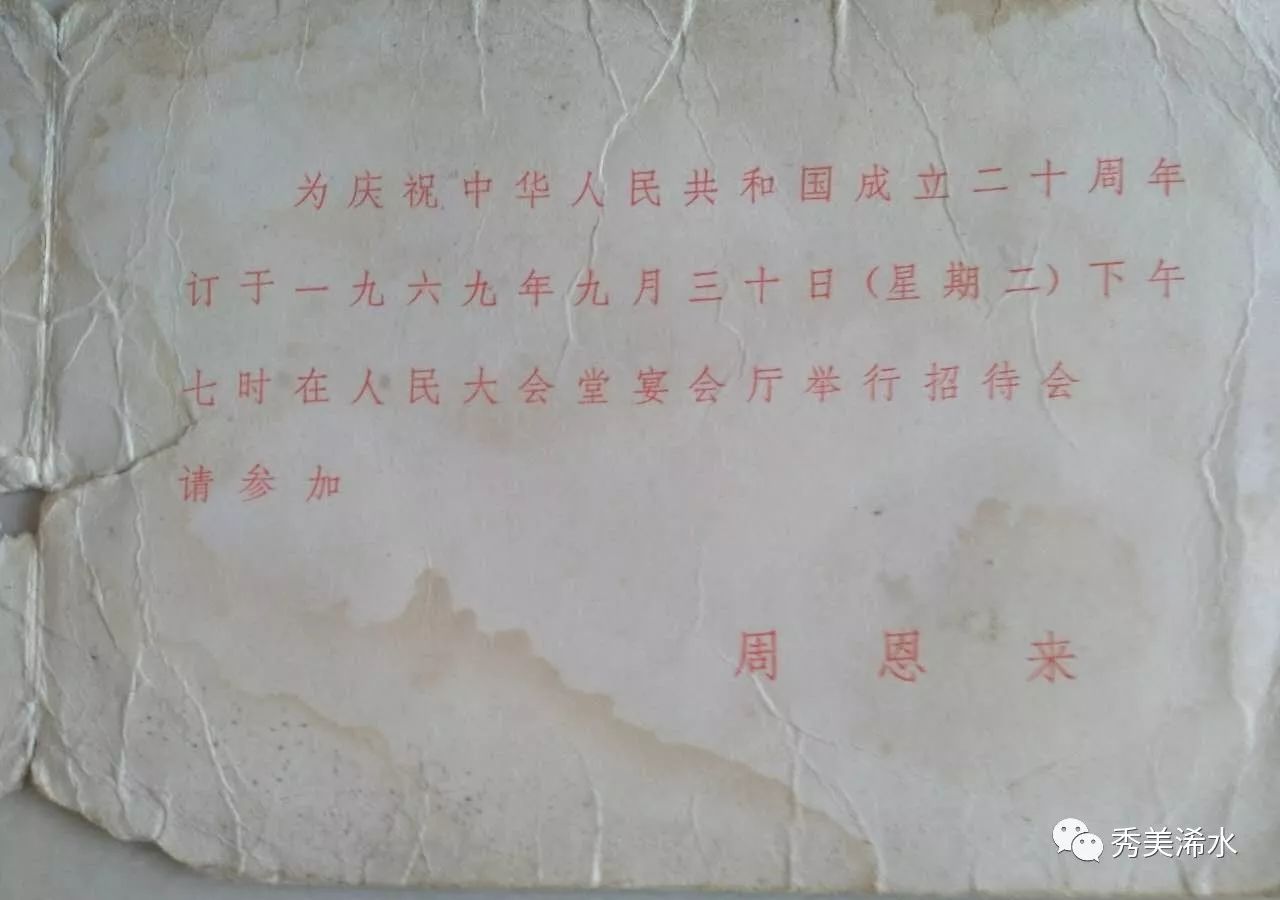 为庆祝中华人民共和国成立二十周年
订于一九六九年九月三十日(星期二)下午
七时在人民大会堂宴会厅举行招待会
请参加
周恩来
秀美浠水